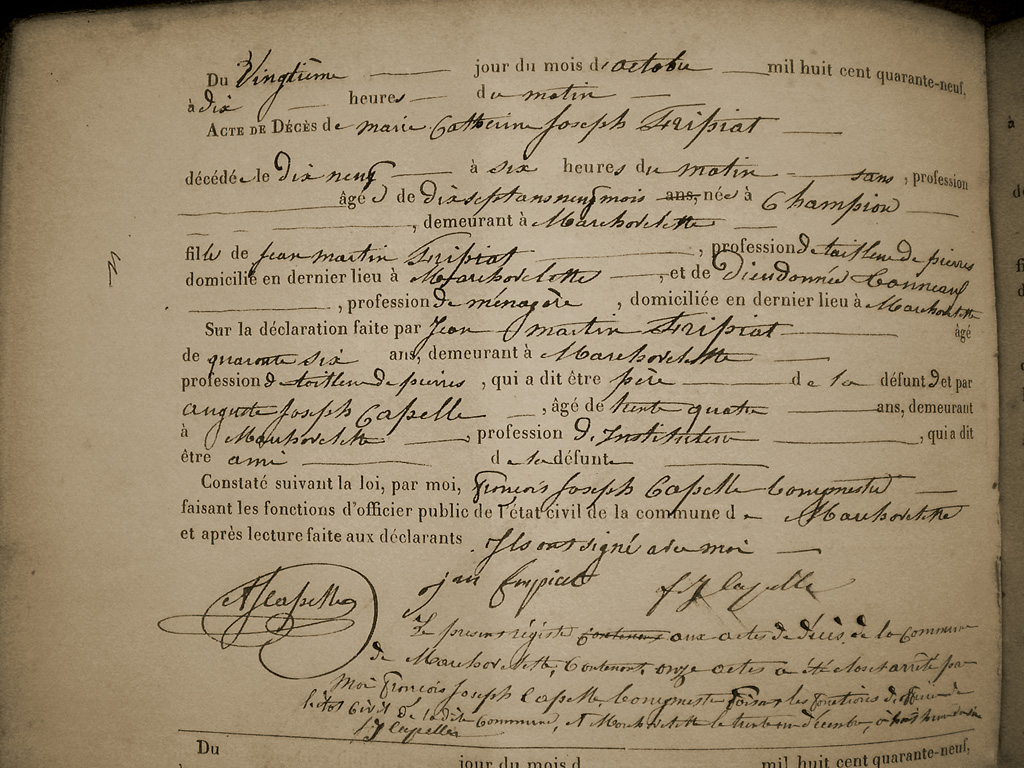 Du Vingtième jour du mois d'octobre mil huit cent quarante-neuf,
à dix heures du matin
ACTE DE DÉCÈS de marie Catherine Joseph Fripiat
décédée le dix neuf à six heures du matin sans, profession
âgéé de dix sept ans neuf mois ans, née à Champion
, demeurant à Marchovelette
fille de jean martin Fripiat, profession de tailleur de pierres
domicilié en dernier lieu à Marchovelette, et de Dieudonnée Bonneau
, profession de ménagère, domiciliée en dernier lieu à Marchovelette
Sur la déclaration faite par Jean martin Fripiat âgé
de quarante six ans, demeurant à Marchovelette
profession de tailleur de pierres, qui a dit être père de la défunte et par
auguste Joseph Capelle, âgé de trente quatre ans, demeurant
à Marchovelette, profession d'Instituteur, qui a dit
être ami de la défunte
Constaté suivant la loi, par moi, François Joseph Capelle Bourgmestre
faisant les fonctions d'officier public de l'état civil de la commune de Marchovelette
et après lecture faite aux déclarants Ils ont signé avec moi
jean fripiat fJ Capelle
AJCapelle
Le présent régistre contenant aux actes de décès de la Commune
de Marchovelette, Contenant onze actes a été clos et arrêté par
Moi François Joseph Capelle Bourgmestre faisant les fonctions d'officier de
l'état Civil de la dite Commune, A Marchovelette le trente un décembre, à
fJ Capelle
Du jour du mois d mil huit cent quarante-neuf,